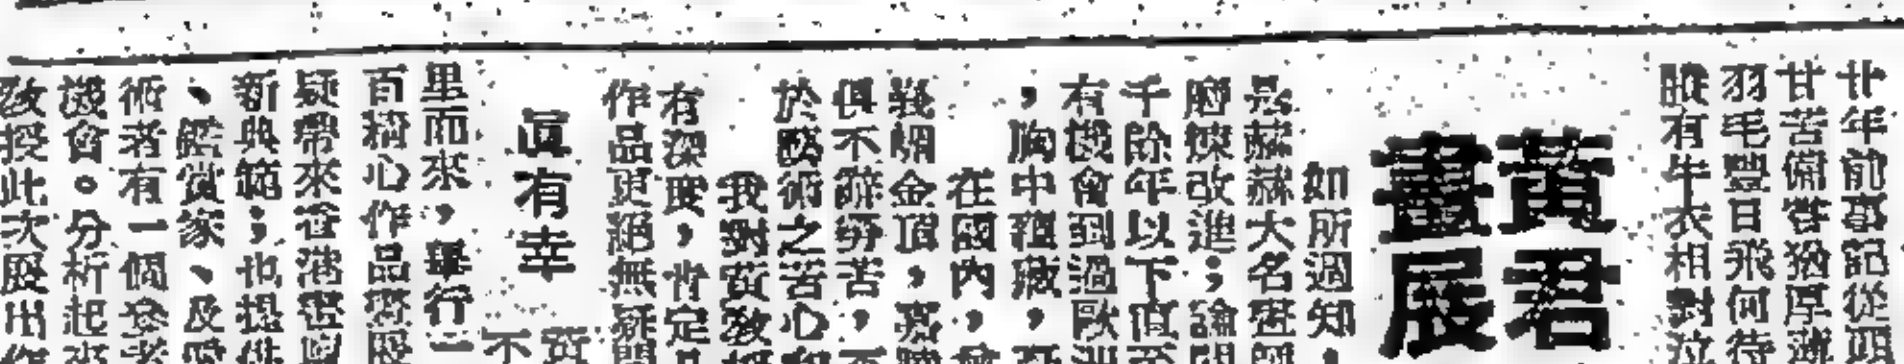 廿年前事記從
甘苦備嘗猶厚
羽毛豐日飛何待
睽有牛衣相對泣
黃君
畫展
如所過知,
大名
磨煉改進;論
千餘年以下直至
有機會到過歐洲
,胸中蘊藏,
在國內,曾
峨嵋金頂,
俱不辭勞苦,不
於藝術之苦心和
我對黃教授
有深度,肯定
作品更絕無疑問
真有幸
黃
不
里而來,舉行二
百精心作品
疑帶來香港
新典範;也提供
、鑑賞家、及愛
術者有一個參考
機會。分析起來
教授此次展出